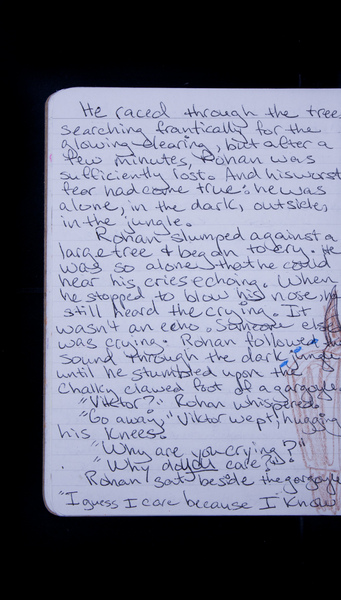 He raced through the tree
searching frantically for the
glowing clearing, but after a
few minutes, Rohan was
sufficiently lost. And his worst
fear had come true: he was
alone, in the dark, outside,
in the jungle.
Rohan slumped against a
large tree & began to cry. He
was so alone that he could
hear his cries echoing. When
he stopped to blow his nose, he
still heard the crying. It
wasn't an echo. Someone else
was crying. Rohan followed the
sound through the dark jungle
until he stumbled upon the
chalky clawed foot of a gargoyle.
"Viktor?" Rohan whispered.
"Go away," Viktor wept, hugging
his knees.
"Why are you crying?"
"Why do you care?"
Rohan sat beside the gargoyle
"I guess I care because I know